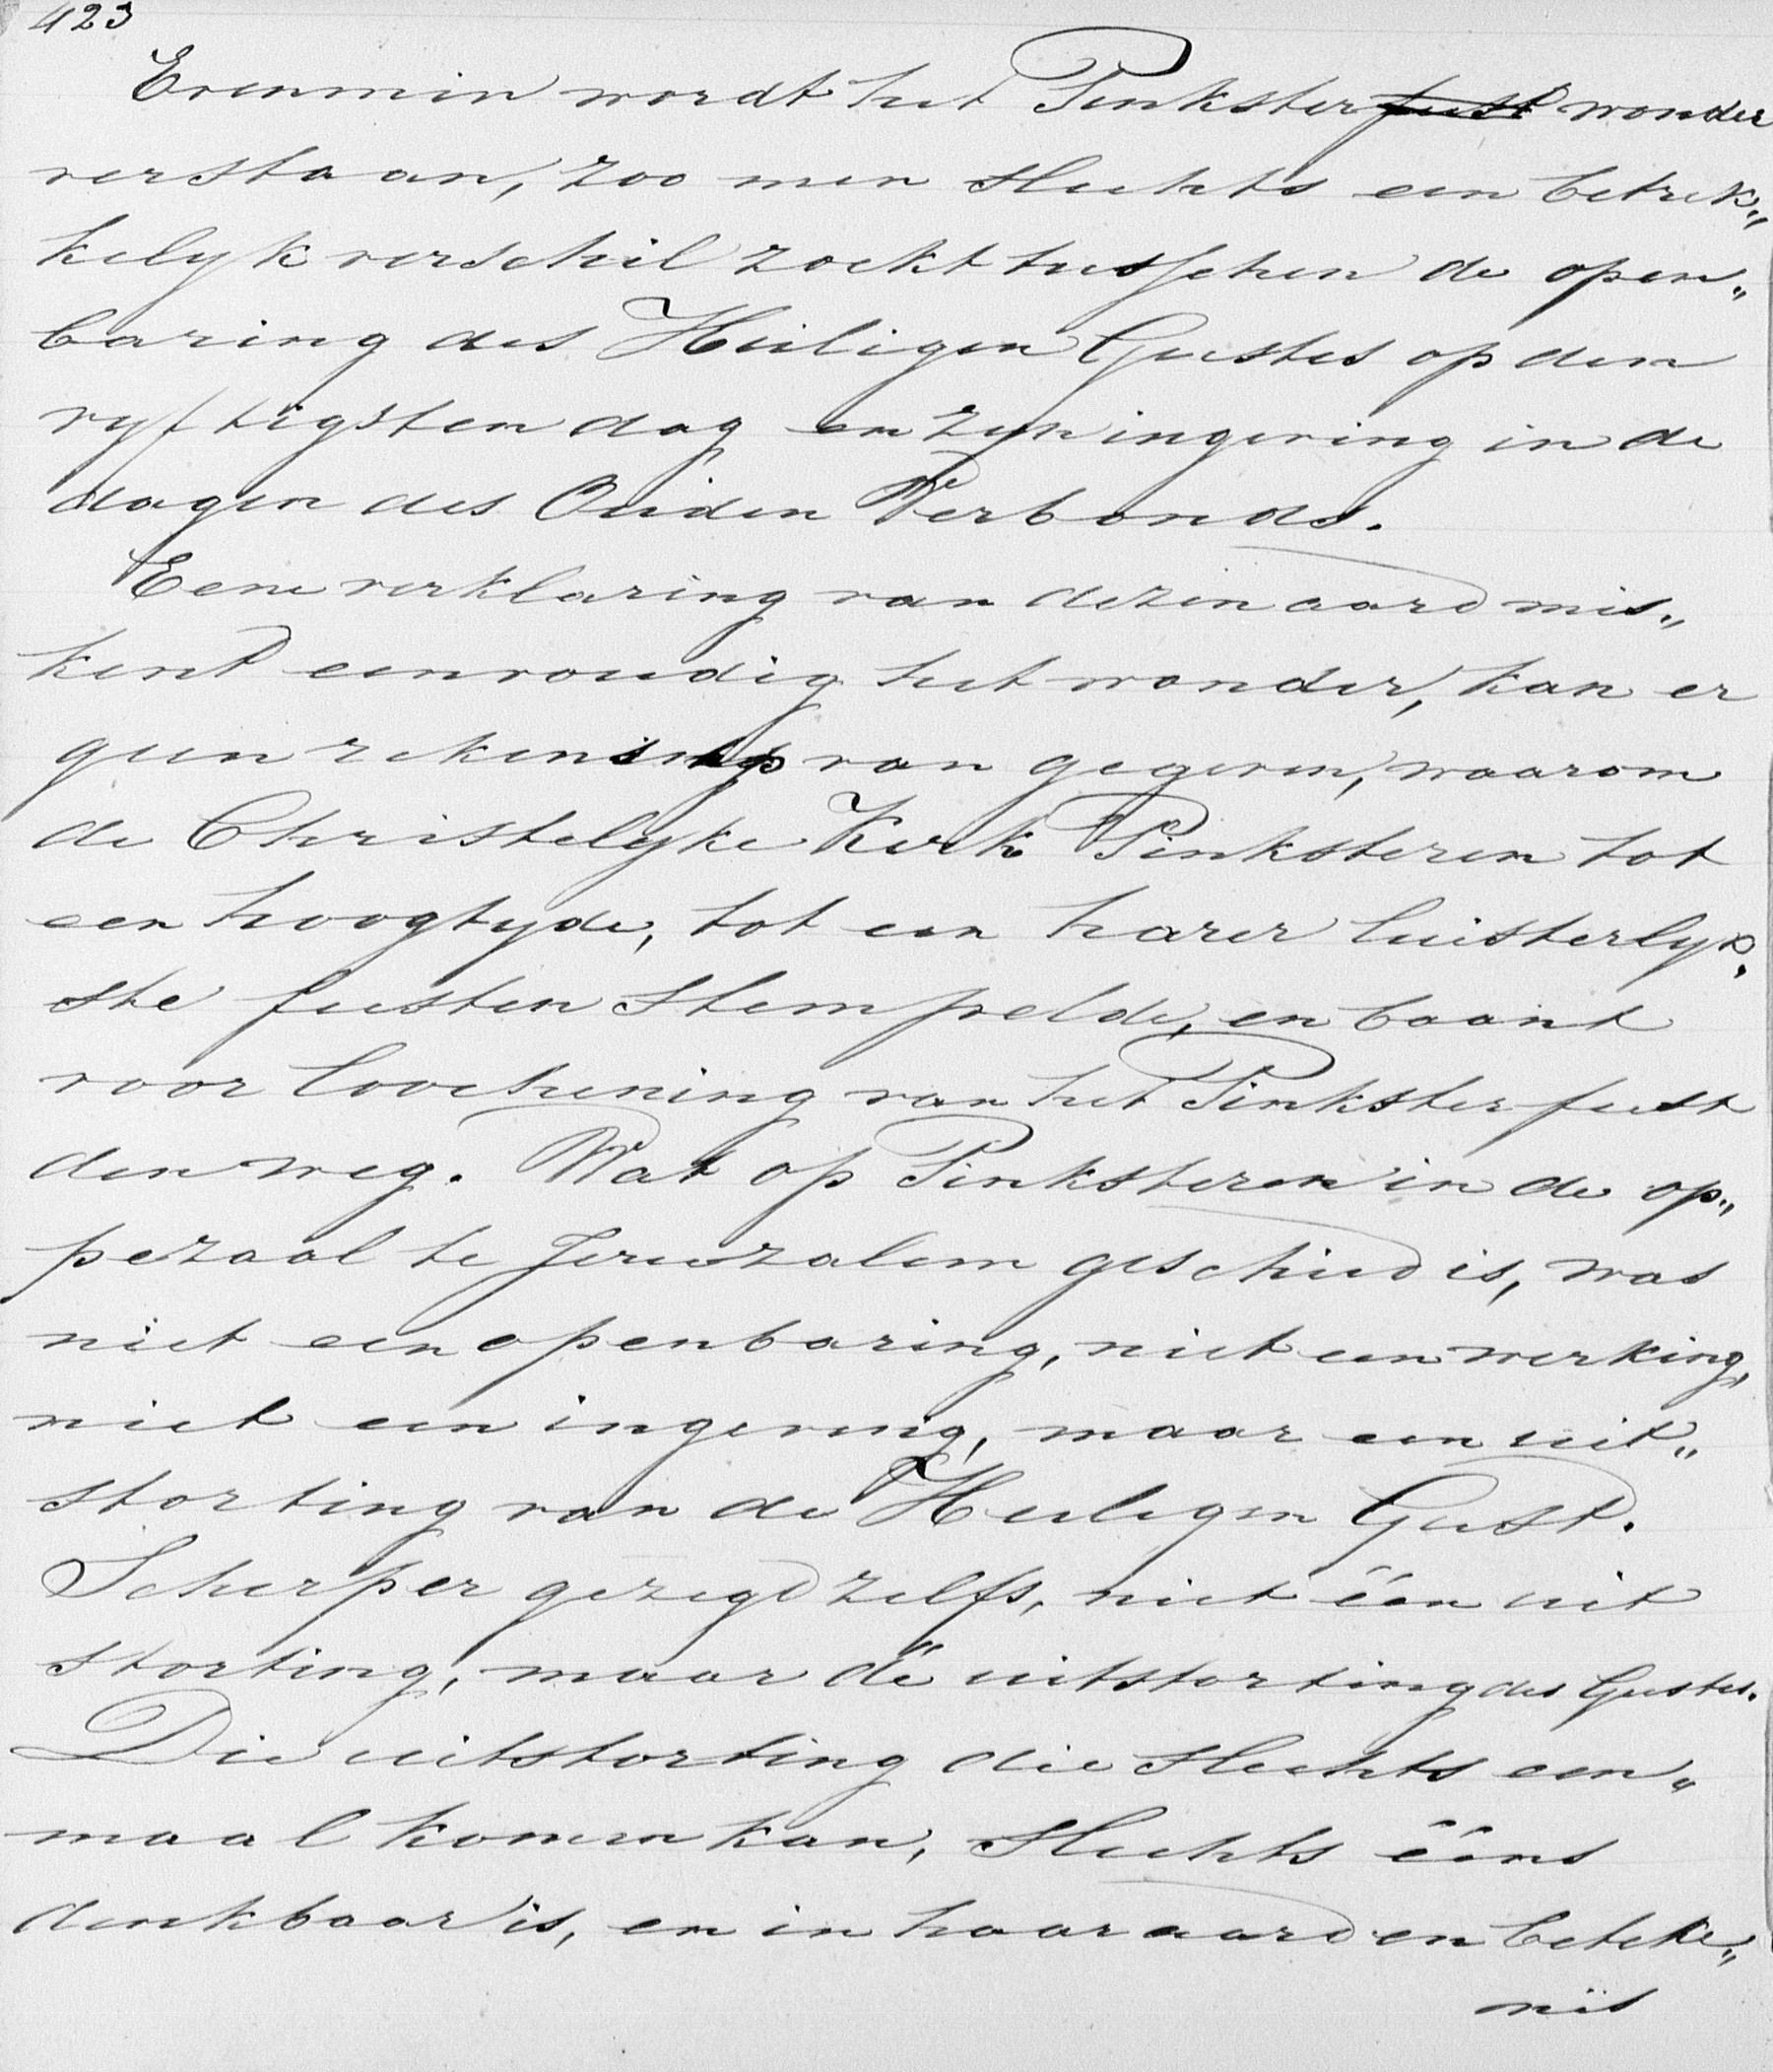 423
Evenmin wordt het Pinksterfeest wonder
verstaan, zoo men slechts een betrek„
kelyk verschil zoekt tusschen de open„
baring des Heiligen Geestes op den
vyftigsten dag en zyn ingeving in de
dagen des Ouden Verbonds.
Eene verklaring van dezen aard mis„
kent eenvoudig het wonder, kan er
geen rekening van gegeven, waarom
de Christelyke Kerk Pinksteren tot
een hoogtyde, tot een harer luisterlyk„
ste feesten stempelde, en baant
voor loochening van het Pinksterfeest
den weg. Wat op Pinksteren in de op„
pezaal te Jeruzalem geschied is, was
niet een openbaring, niet een werking,
niet een ingeving, maar een uit„
storting van de Heiligen Geest.
Scherper gezegd zelfs, niet één uit
storting, maar dé uitstorting des Geestes.
Die uitstorting die slechts een„
maal komen kan, slechts ééns
denkbaar is, en in haar aard en beteke„
nis